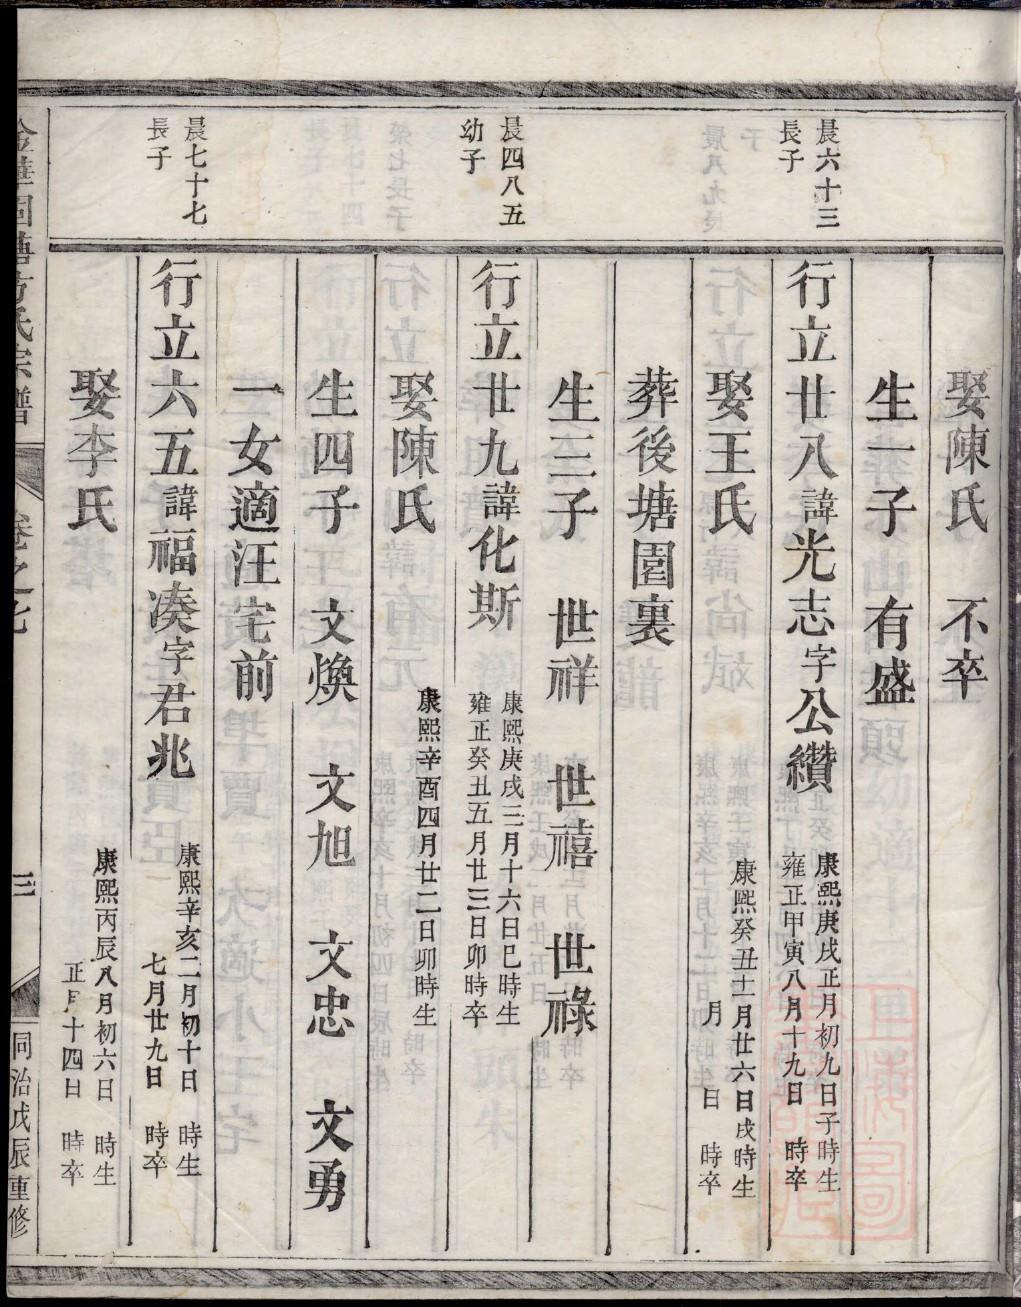 娶陳氏 不卒
生一子 有盛
晨六十三
長子
行立廿八諱光志字公纘
康熙庚戌正月初九日子時生
雍正甲寅八月十九日 時卒
娶王氏
康熙癸丑十一月廿六日戌時生
月 日 時卒
葬後塘園裏
生三子 世祥 世禧 世祿
晨四八五
幼子
行立廿九諱化斯
康熙庚戌二月十六日巳時生
雍正癸丑五月廿三日卯時卒
娶陳氏
康熙辛酉四月廿二日卯時生
生四子 文煥 文旭 文忠 文勇
一女適汪宅前
晨七十七
長子
行立六五諱福湊字君兆
康熙辛亥二月初十日 時生
七月廿九日 時卒
娶李氏
康熙丙辰八月初六日 時生
正月十四日 時卒
方氏宗譜
卷之七
三
同治戊辰重修